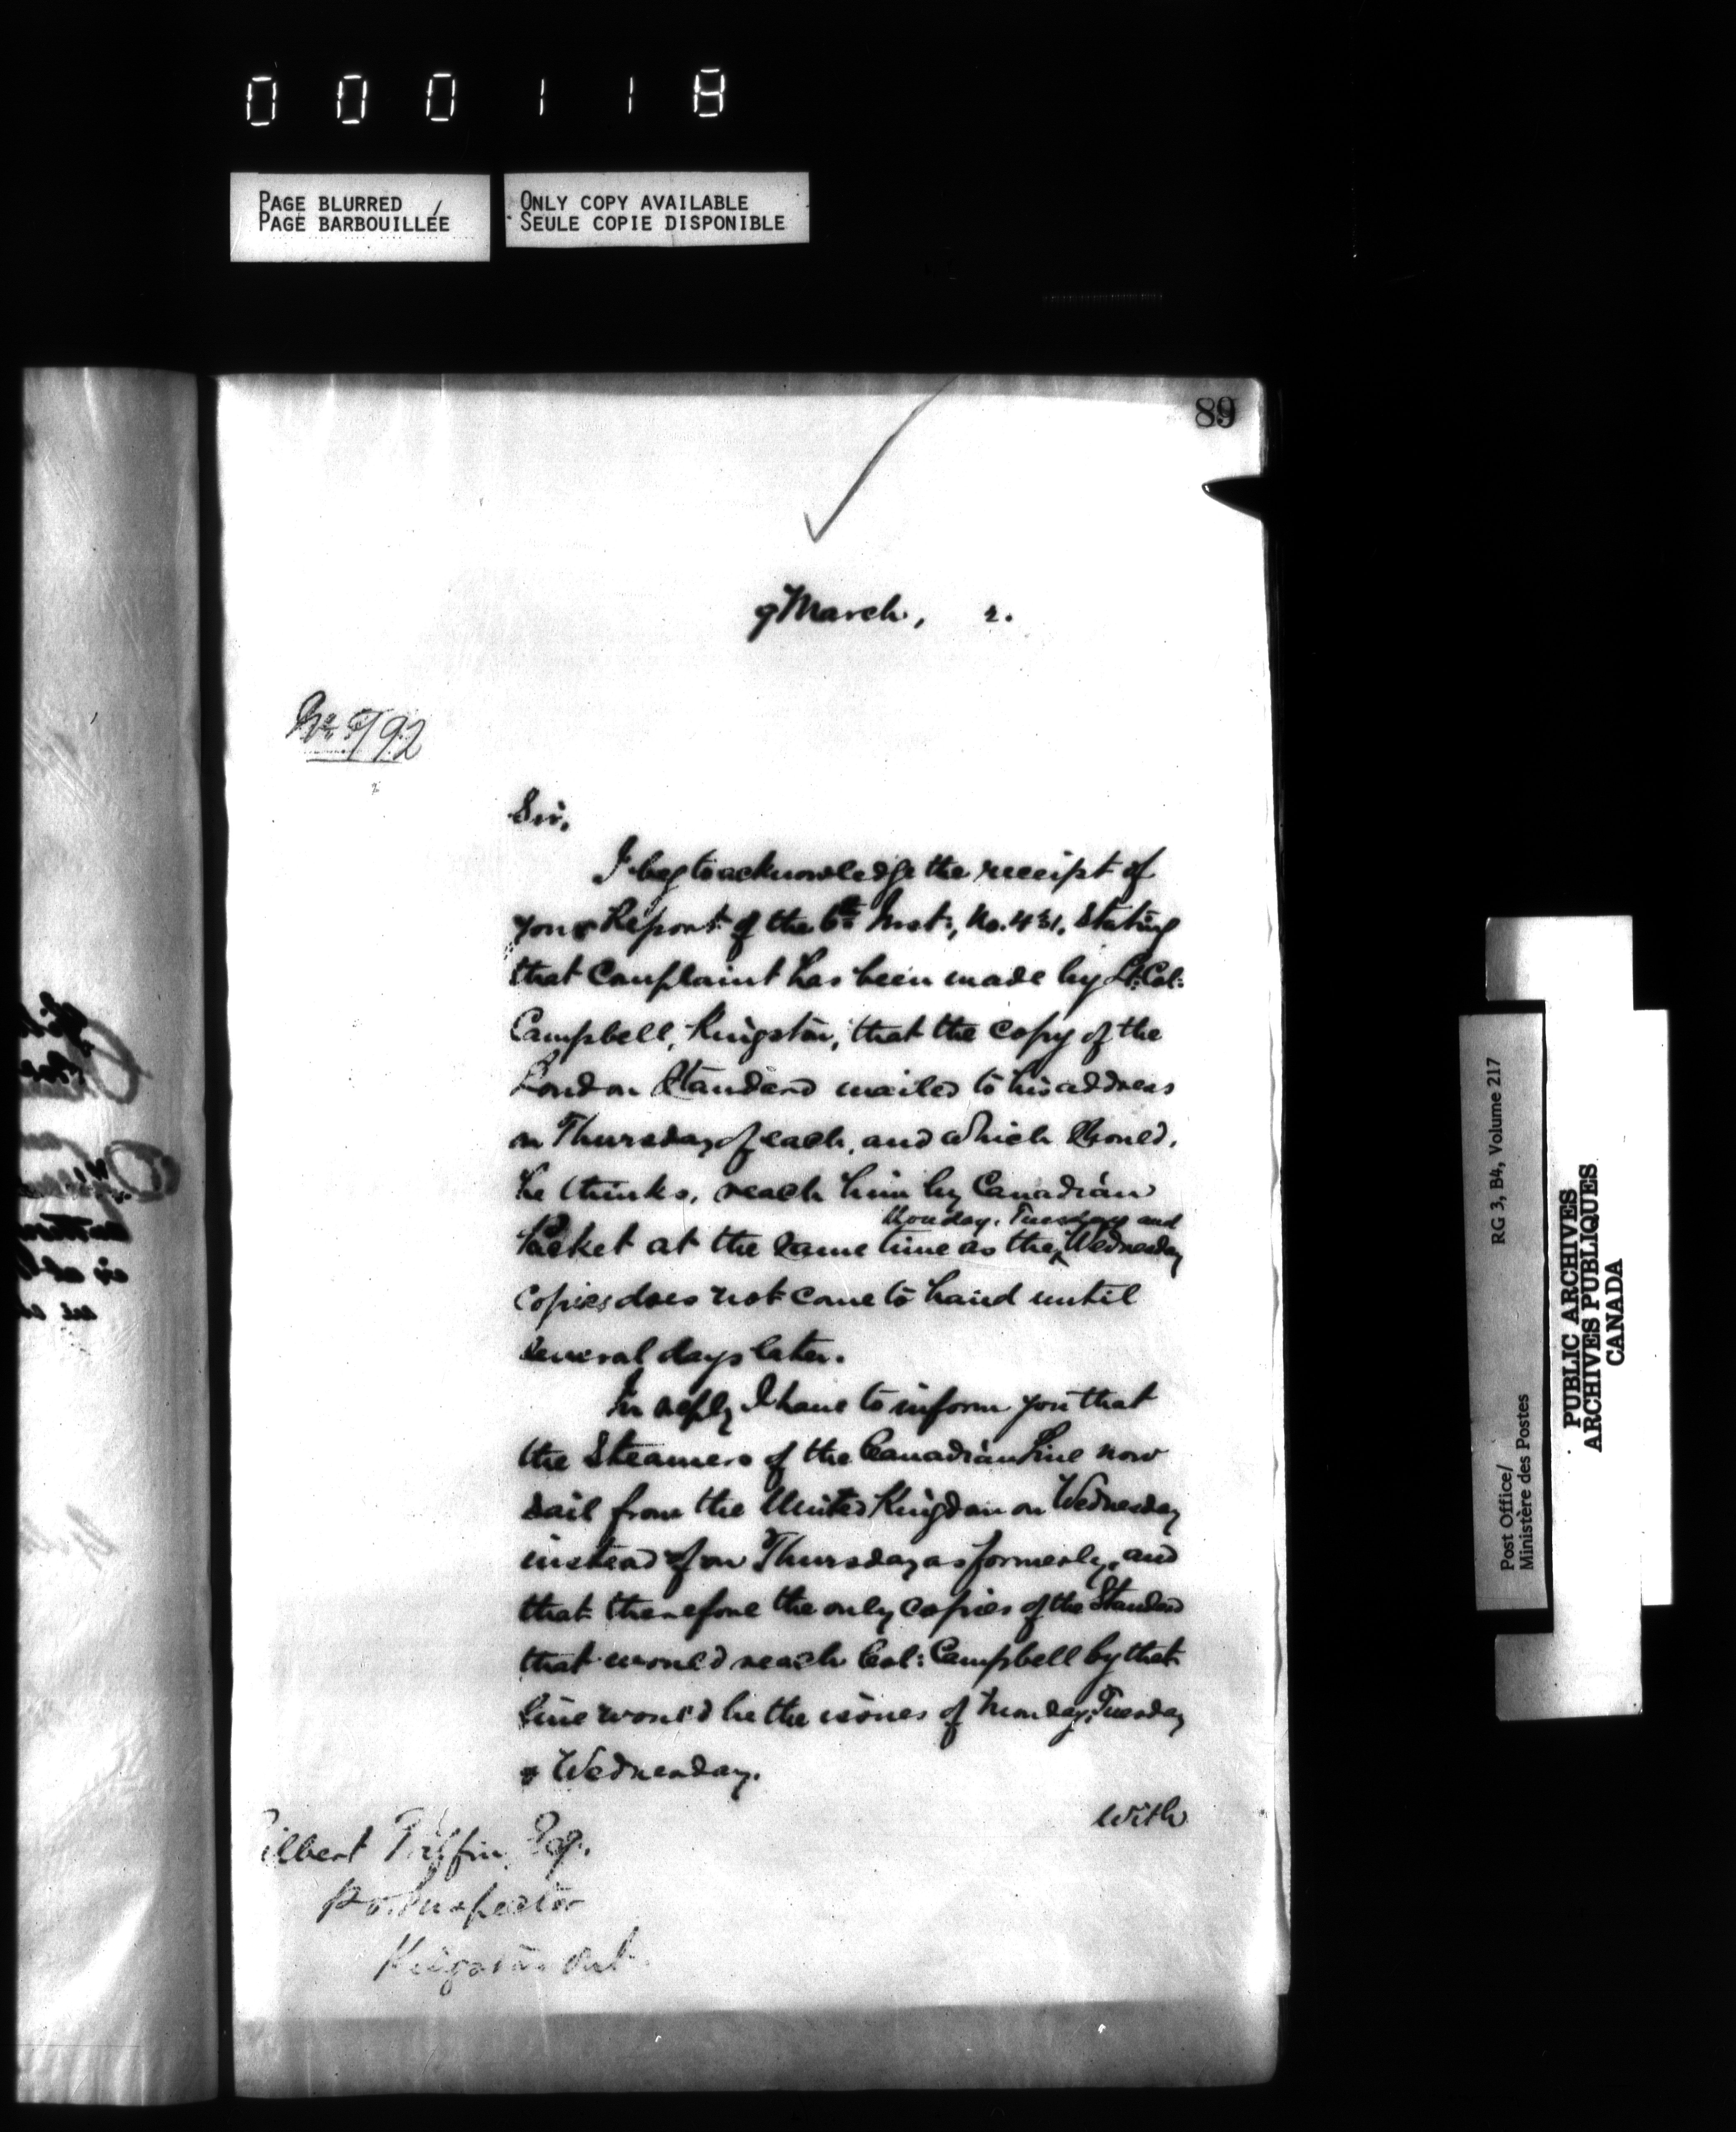 000118
PAGE BLURRED
PAGE BARBOUILLÉE
ONLY COPY AVAILABLE
SEULE COPIE DISPONIBLE
89
9 March, 2.
Sir,
I beg to acknowledge the receipt of
your Report of the 6th Inst:, No. 431, stating
that Complaint has been made by Lt: Col:
Campbell, Kingston, that the copy of the
London Standard mailed to his address
on Thursday of each, and which should,
he thinks, reach him by Canadian
Monday, Tuesday and
Packet at the same time as the Wednesday
copies does not come to hand until
several days later.
In reply I have to inform you that
the Steamers of the Canadian Line now
sail from the United Kingdom on Wednesday
instead of on Thursday as formerly, and
that therefore the only copies of the Standard
that would reach Col: Campbell by that
line would be the issues of Monday, Tuesday
& Wednesday.
With
ilbert Griffin, Esq.
P.O. Inspector
Kingston Ont.
RG 3, B4, Volume 217
Post Office/
Ministère des Postes
PUBLIC ARCHIVES
ARCHIVES PUBLIQUES
CANADA